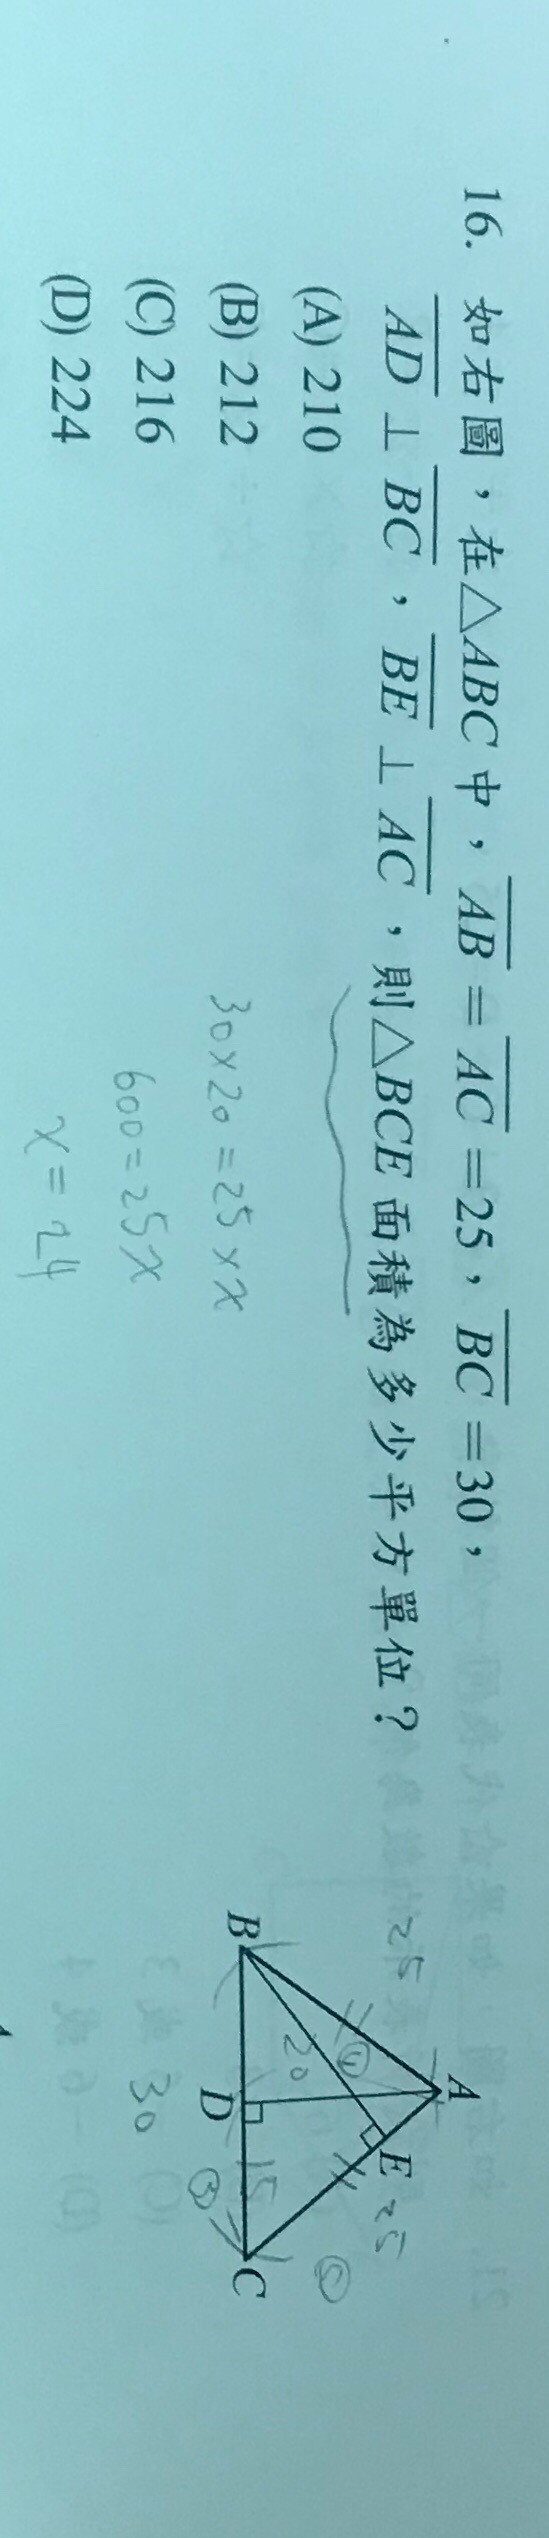 16. 如右圖，在△ABC中，AB＝AC＝25，BC＝30，
AD⊥BC，BE⊥AC，則△BCE面積為多少平方單位？
(A) 210
(B) 212
(C) 216
(D) 224
30×20=25×x
600=25x
x=24
A
B
C
D
E
25
25
20
15
30
④
③
⑤